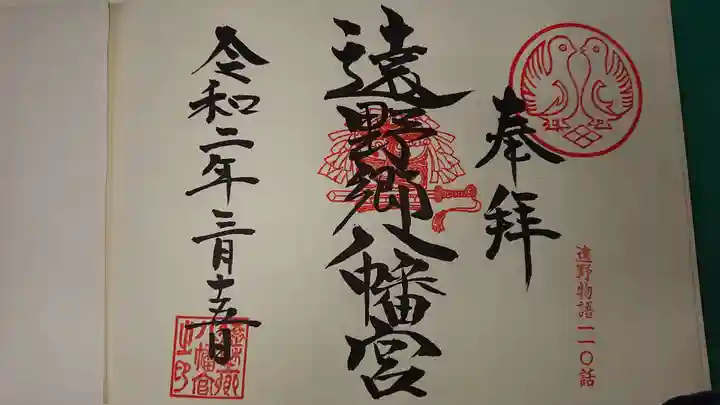 奉拝
遠野物語一一〇話
遠野郷八幡宮
令和二年三月十五日
遠野郷
八幡宮
之印